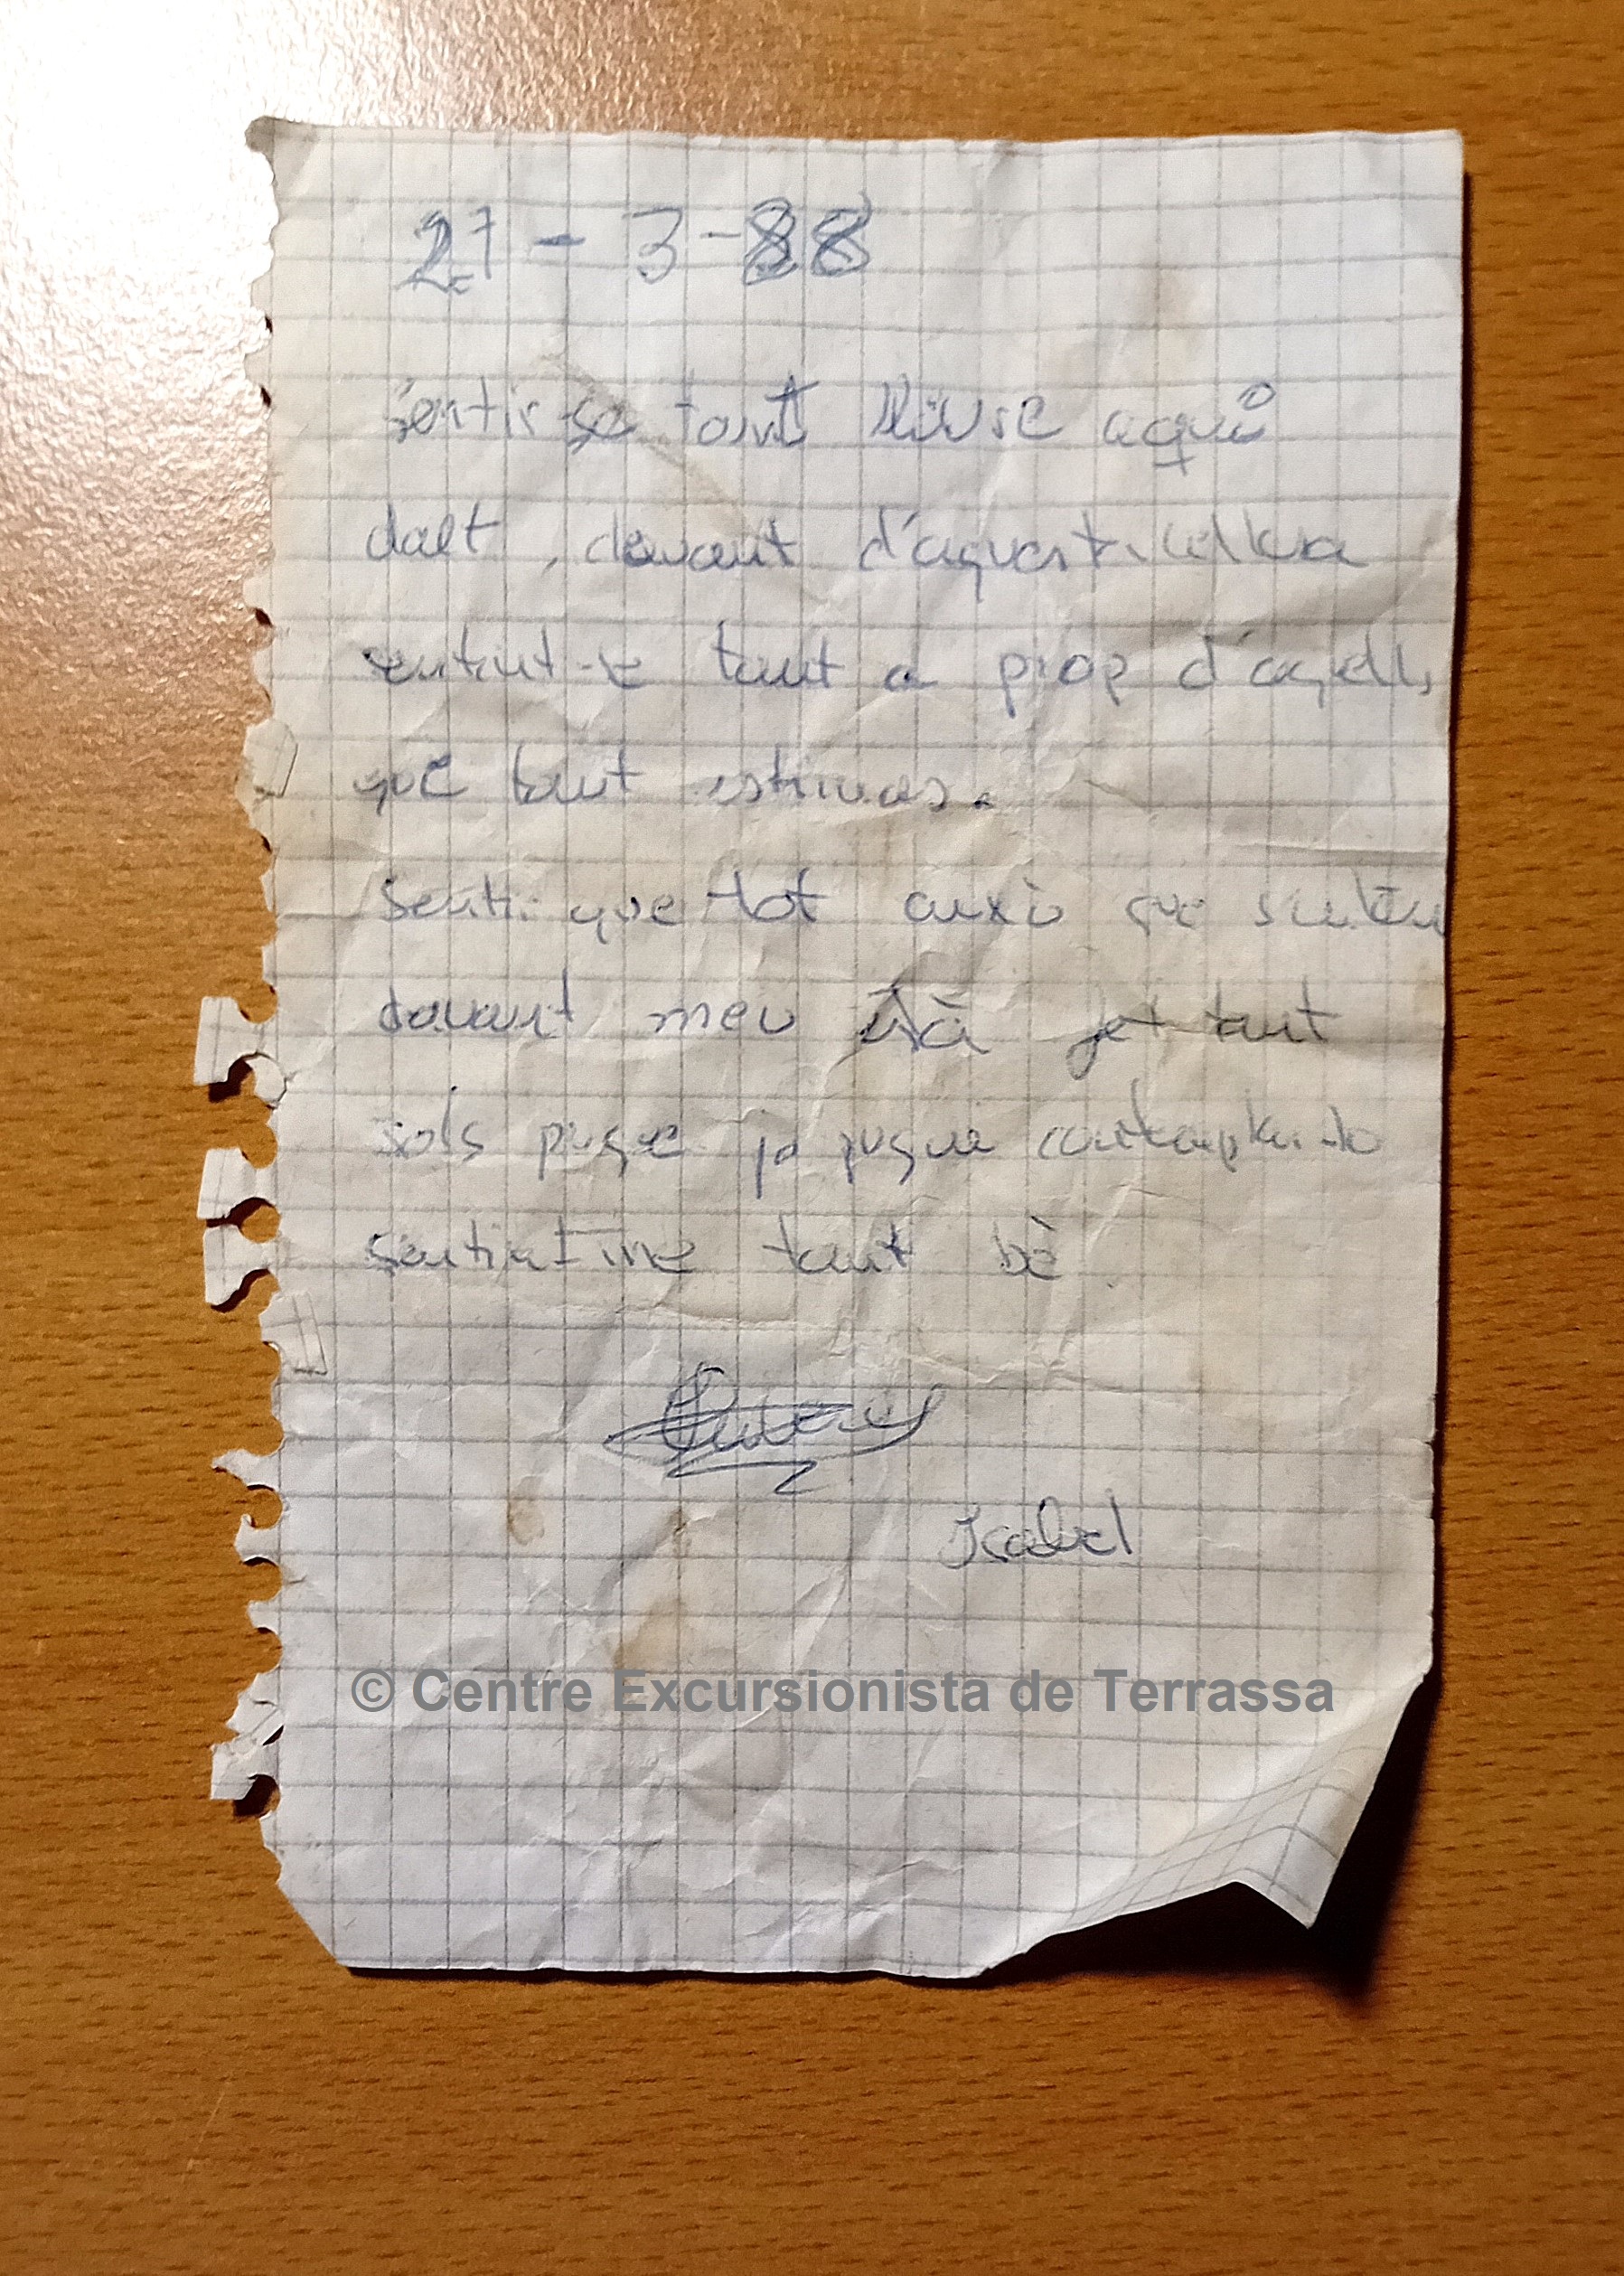 27-3-88
sentir-se tant lliure aquí
dalt, davant d'aquesta
sentint-se tant a prop d'aquells
que tant estimes.
Sentir que tot això que
davant meu està fet tant
sols perque jo pugui contemplar-lo
sentint-me tant bè.
Isabel
© Centre Excursionista de Terrassa